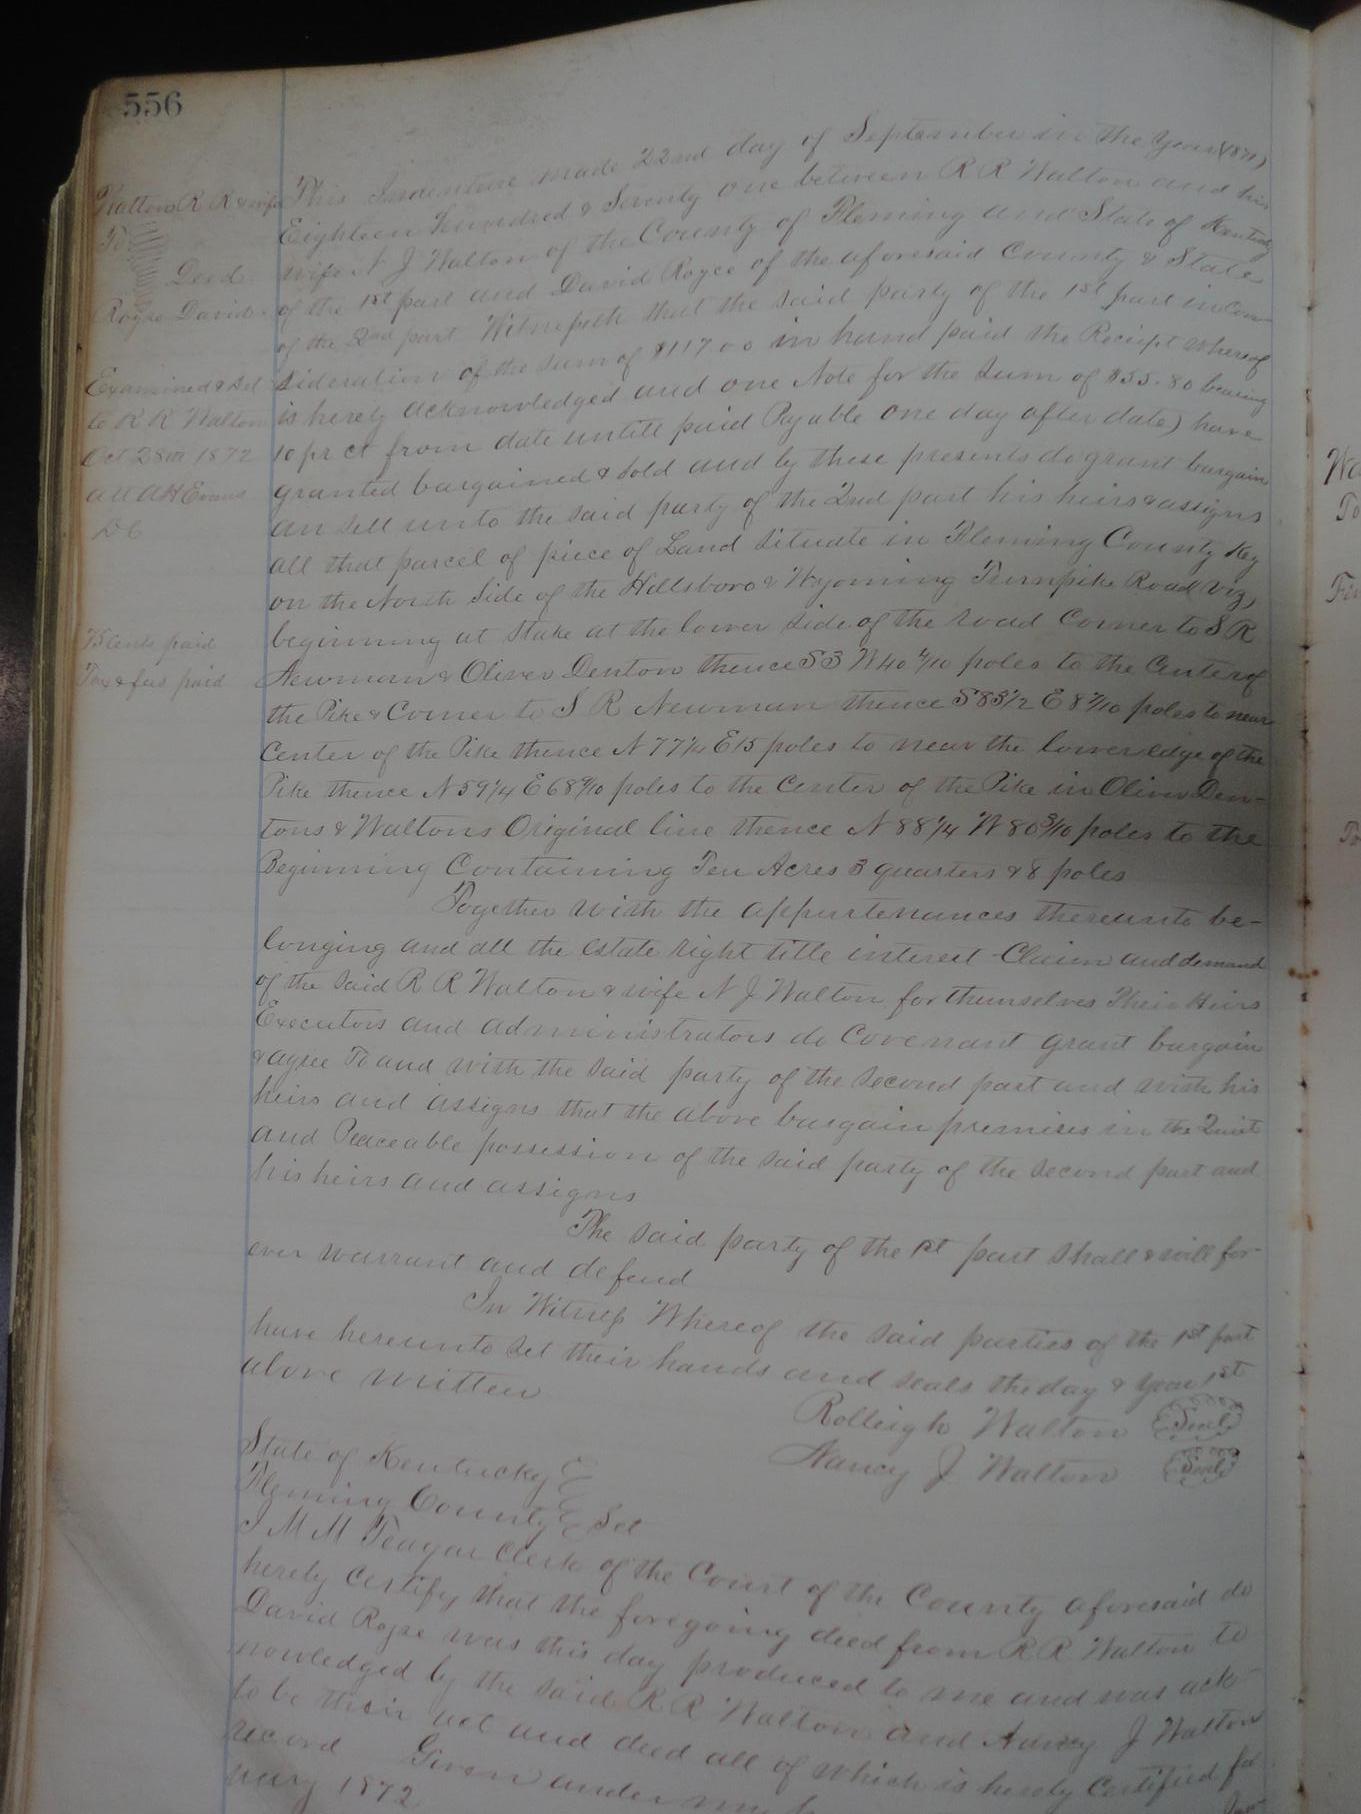 556
Walton R R & wife
To
Deed
Royse David
Examined & del
to R R Walton
Oct 28th 1872
att A H Evans
D C
75 cents paid
Tax & fees paid
This Indenture made 22nd day of September in the year (1871)
Eighteen Hundred & Seventy one between R R Walton and his
wife N J Walton of the County of Fleming and State of Kentucky
of the 1st part and David Royce of the aforesaid County & State
of the 2nd part Witnesseth that the said party of the 1st part in Con-
sideration of the sum of $117 00 in hand paid the Receipt whereof
is herely acknowledged and one Note for the Sum of $55.80 bearing
10 pr ct from date untill paid Payable one day after date) have
granted bargained & Sold and by these presents do grant bargain
an sell unto the said party of the 2nd part his heirs & assigns
all that parcel of piece of Land Situate in Fleming County Ky
on the North Side of the Hillsboro & Wyoming Turnpike Road viz,
beginning at Stake at the lower Side of the road Corner to S R
Newman & Oliver Denton thence S 3 W 40 4/10 poles to the Center of
the Pike & Corner to S R Newman thence S 83 1/2 E 8 7/10 poles to near
Center of the Pike thence N 77 1/4 E 15 poles to near the lower edge of the
Pike thence N 59 1/4 E 68 9/10 poles to the Center of the Pike in Oliver Den-
tons & Waltons Original line thence N 88 1/4 W 80 3/10 poles to the
Beginning Containing Ten Acres 3 quarters & 8 poles
Together with the appurtenances thereunto be-
longing and all the estate right title interest Claim and demand
of the Said R R Walton & wife N J Walton for themselves Their Heirs
Executors and administrators do Covenant grant bargain
& agree To and with the Said party of the Second part and with his
heirs and assigns that the above bargain premises in the Quiet
and Peaceable possession of the Said party of the Second part and
his heirs and assigns
The Said party of the 1st part Shall & will for-
ever warrant and defend
In Witness Whereof the Said parties of the 1st part
have hereunto Set their hands and seals the day & year 1st
above written
Rolleigh Walton Seal
Nancy J Walton Seal
State of Kentucky
Fleming County Sct
I M M Teagar Clerk of the Court of the County aforesaid do
herely Certify that the foregoing deed from R R Walton to
David Royse was this day produced to me and was ack-
nowledged by the Said R R Walton and Nancy J Walton
to be their act and deed all of which is herely Certified for
record Given under my
uary 1872